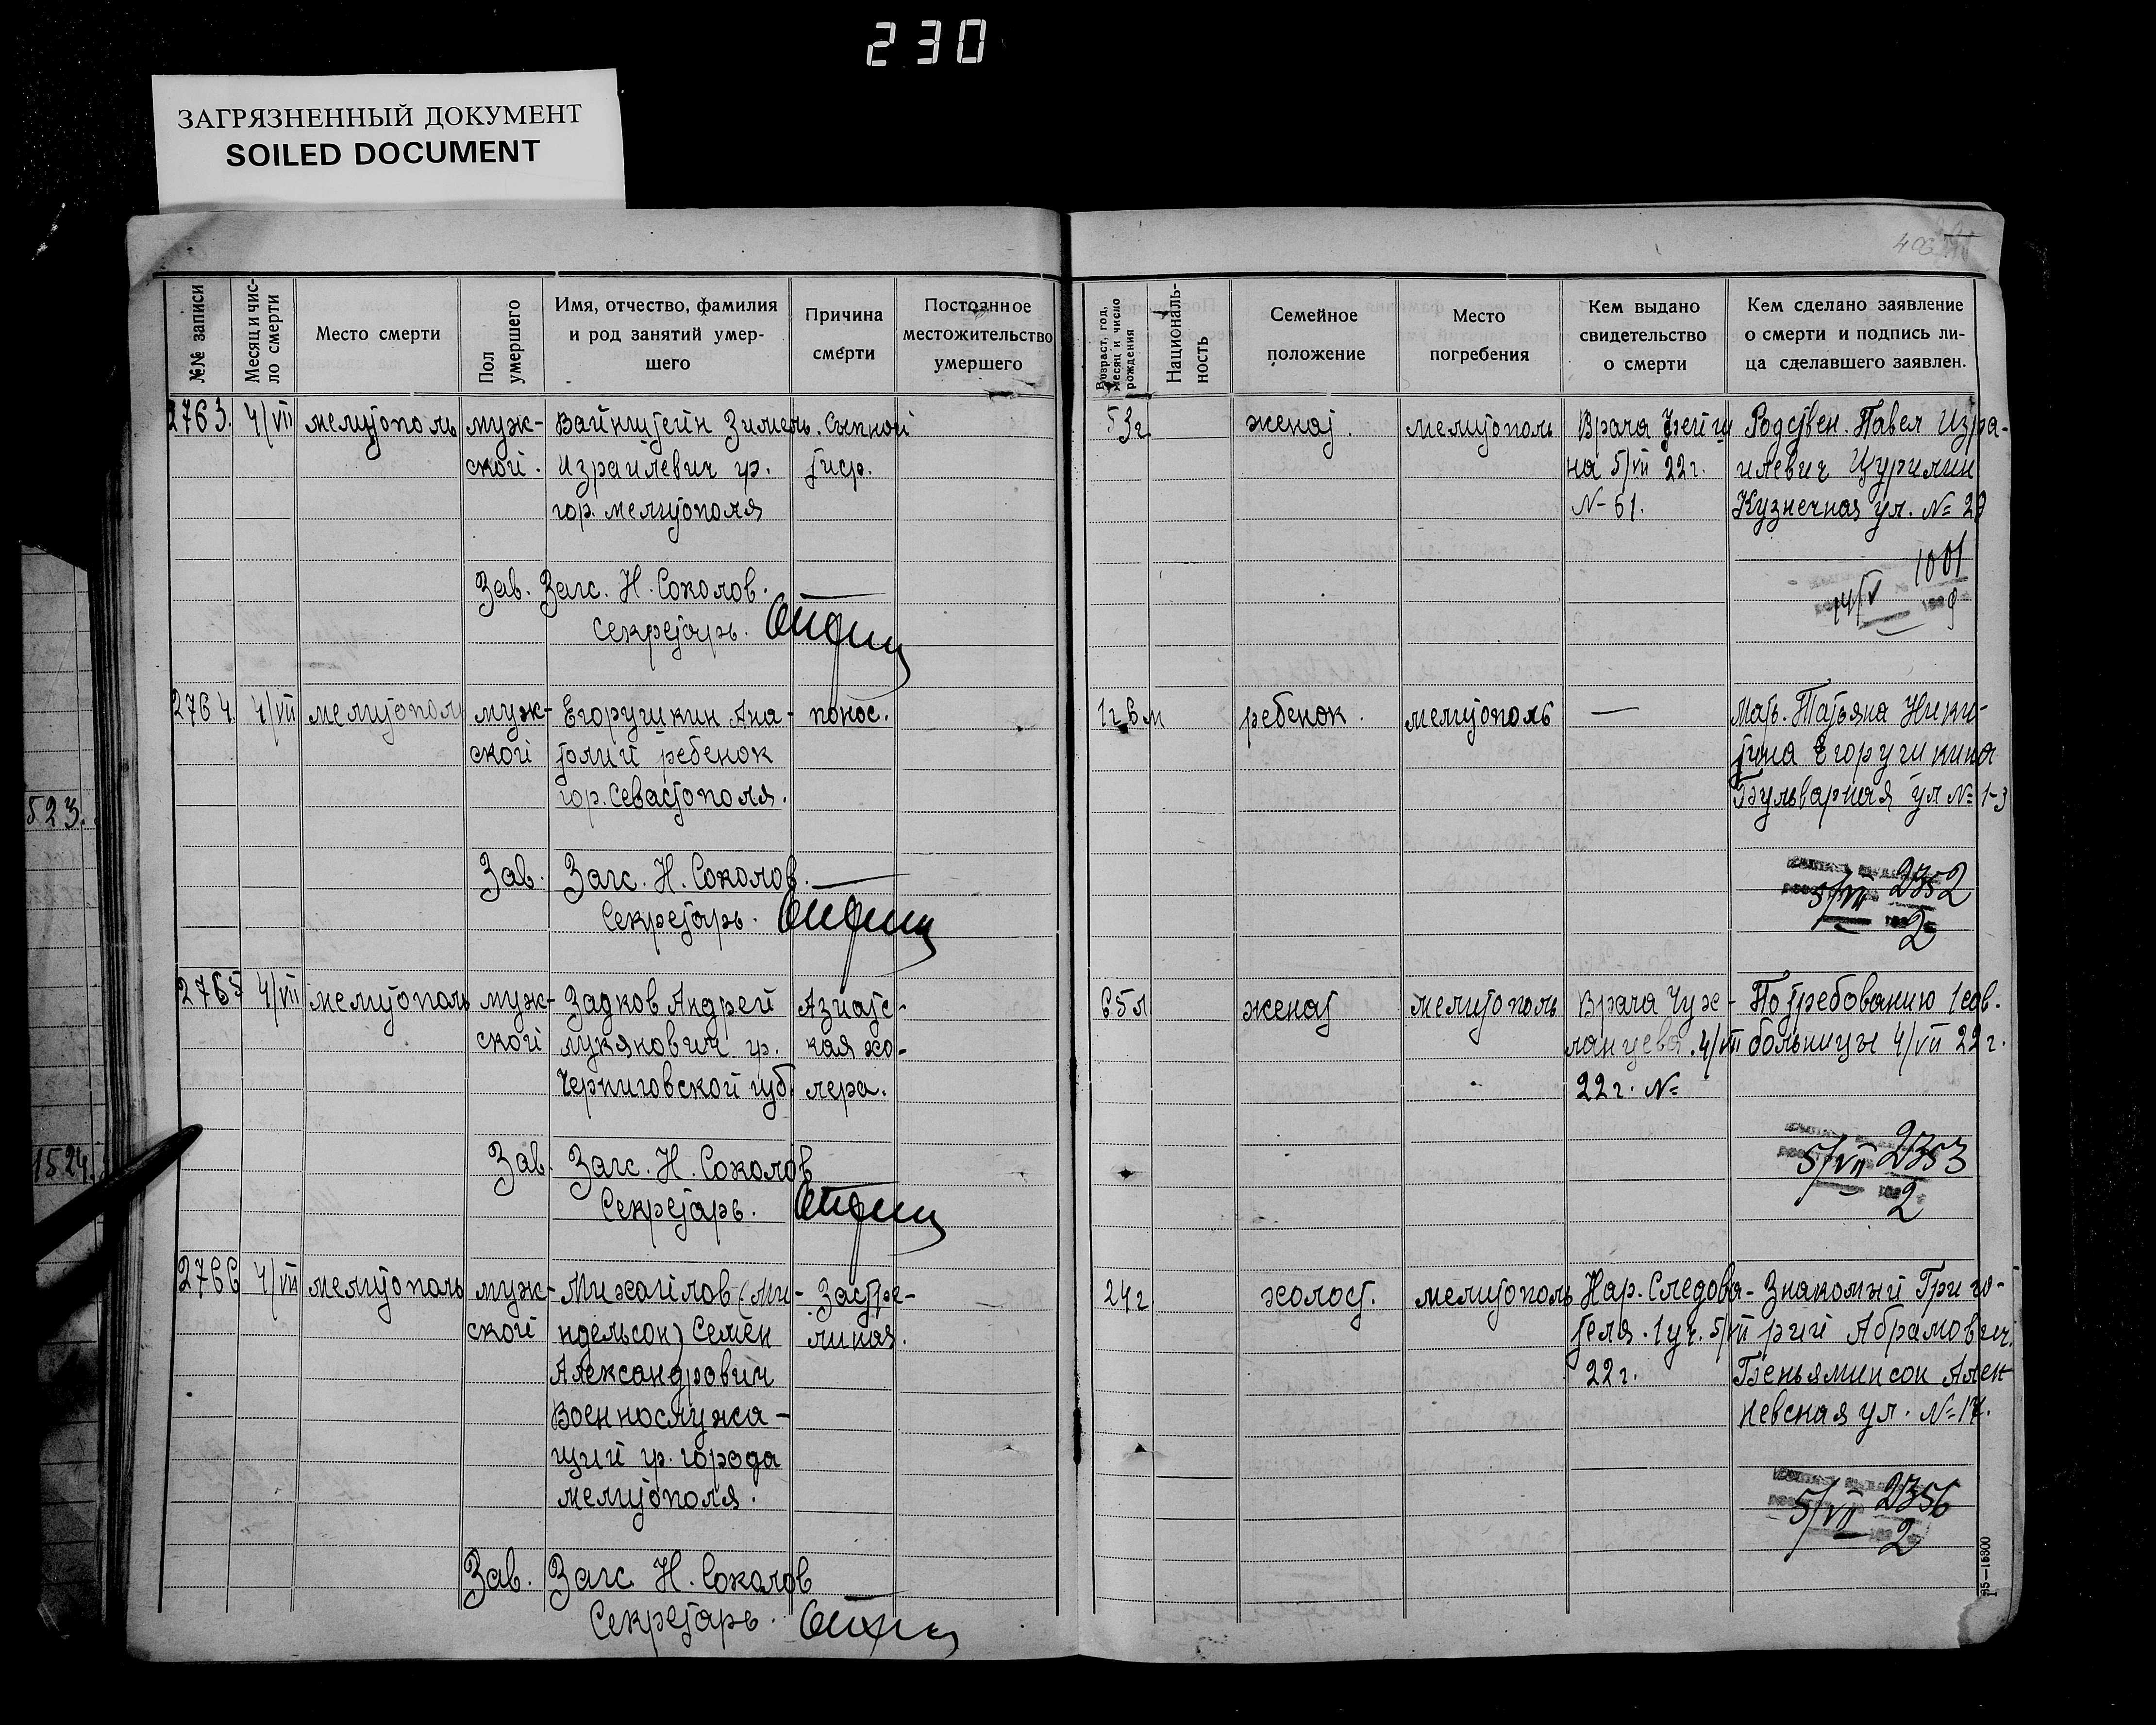 230
ЗАГРЯЗНЕННЫЙ ДОКУМЕНТ
SOILED DOCUMENT
№№ записи
Месяц и чис-
ло смерти
Место смерти
Пол
умершего
Имя, отчество, фамилия
и род занятий умер-
шего
Причина
смерти
Постоянное
местожительство
умершего
Возраст, год,
месяц и число
рождения
Националь-
ность
Семейное
положение
Место
погребения
Кем выдано
свидетельство
о смерти
Кем сделано заявление
о смерти и подпись ли-
ца сделавшего заявлен.
2763. 4/VII Мелитополь муж-
ской.
Вайнштейн
Израилевич гр.
гор. Мелитополя
Сыпной
тиф.
53г. женат. Мелитополь
Врача
на 5/VII 22г.
№ 61.
Родствен. Павел Изра-
илевич Цурилин
Кузнечная ул. № 29
Зав. Загс. Н. Соколов.
Секретарь.
2764. 4/VII Мелитополь муж-
ской
Егорушкин Ана-
толий ребенок
гор. Севастополя.
понос.
1г. 6м ребенок. Мелитополь —
Мать. Татьяна Ники-
тина Егорушкина
Бульварная ул № 1-3
Зав. Загс. Н. Соколов.
Секретарь.
5/VII 2352
2
2765 4/VII Мелитополь муж-
ской
Задков Андрей
Лукянович гр.
Черниговской губ.
Азиатс-
кая хо-
лера.
65л женат Мелитополь
Врача Чуж-
4/VII
22г. №
По требованию 1 сов.
больницы 4/VII 22г.
Зав. Загс. Н. Соколов
Секретарь.
5/VII 2353
2
2766 4/VII Мелитополь муж-
ской
Михайлов (Ми-
ндельсон) Семён
Александрович
Военнослужа-
щий гр. города
Мелитополя.
Застре-
24г. холост. Мелитополь
Нар. Следова-
теля. 1 уч. 5/VII
22г.
Знакомый Григо-
рий Абрамович
Беньяминсон Алек
Невская ул. № 17.
Зав. Загс. Н. Соколов
Секретарь.
5/VII 2356
2
523.
1524.